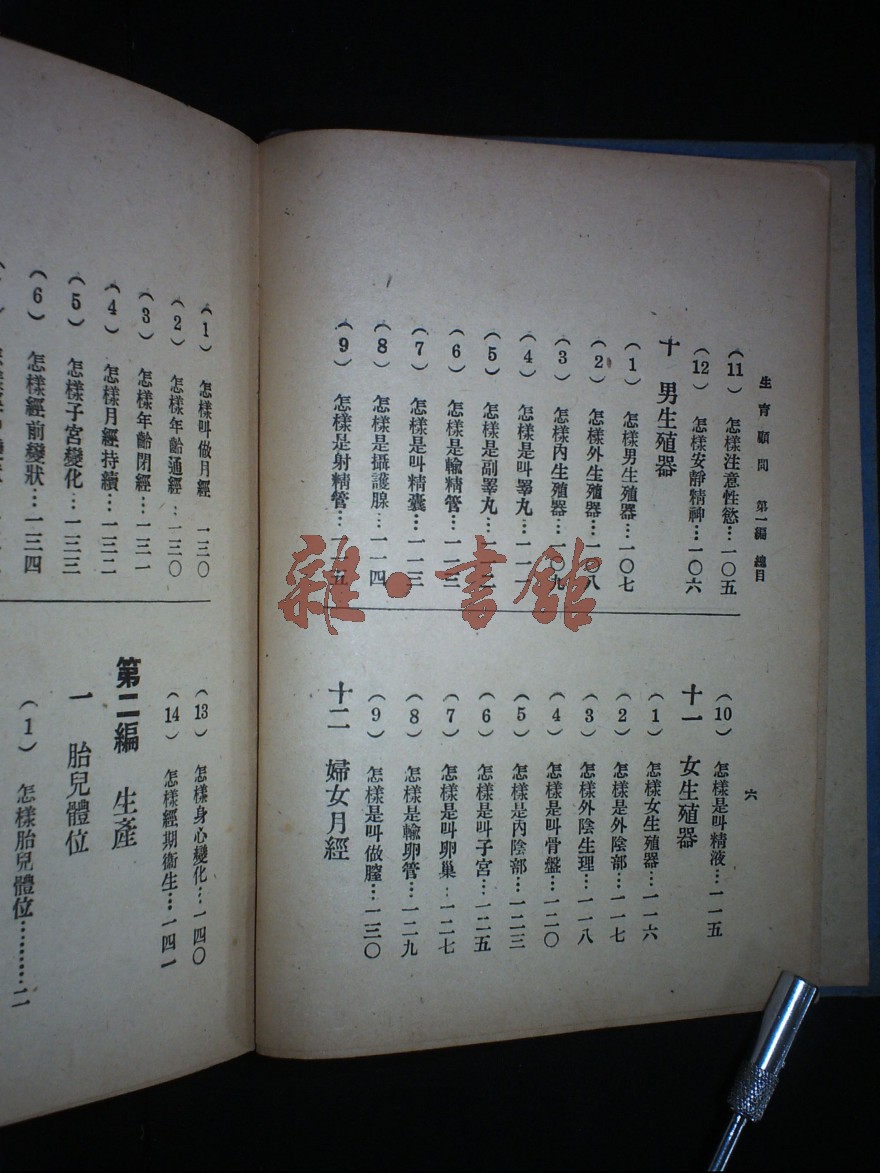 生育顧問 第一編 總目
六
(11) 怎樣注意性慾…一〇五
(12) 怎樣安靜精神…一〇六
十 男生殖器
(1) 怎樣男生殖器…一〇七
(2) 怎樣外生殖器…一〇八
(3) 怎樣內生殖器…一〇九
(4) 怎樣是叫睪丸…一一一
(5) 怎樣是副睪丸…一一二
(6) 怎樣是輸精管…一一三
(7) 怎樣是叫精囊…一一三
(8) 怎樣是攝護腺…一一四
(9) 怎樣是射精管…一一五
(10) 怎樣是叫精液…一一五
十一 女生殖器
(1) 怎樣女生殖器…一一六
(2) 怎樣是外陰部…一一七
(3) 怎樣外陰生理…一一八
(4) 怎樣是叫骨盤…一二〇
(5) 怎樣是內陰部…一二三
(6) 怎樣是叫子宮…一二五
(7) 怎樣是叫卵巢…一二七
(8) 怎樣是輸卵管…一二九
(9) 怎樣是叫做膣…一三〇
十二 婦女月經
(1) 怎樣叫做月經 一三〇
(2) 怎樣年齡通經…一三〇
(3) 怎樣年齡閉經…一三一
(4) 怎樣月經持續…一三二
(5) 怎樣子宮變化…一三三
(6) 怎樣經前變狀…一三四
(13) 怎樣身心變化…一四〇
(14) 怎樣經期衞生…一四一
第二編 生產
一 胎兒體位
(1) 怎樣胎兒體位………二
雜·書館